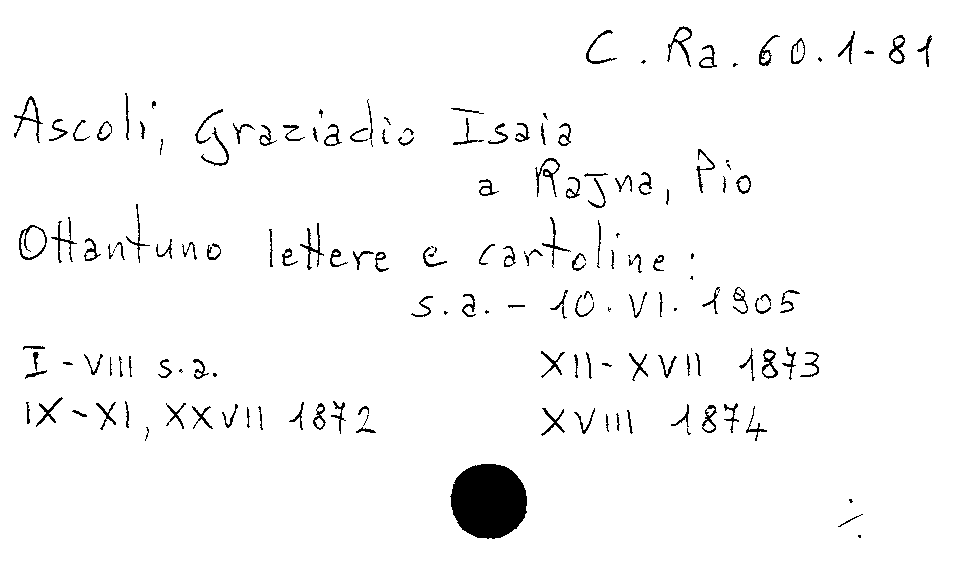 C. Ra. 60. 1-81
Ascoli, Graziadio Isaia
a Rajna, Pio
Ottantuno lettere e cartoline:
s.a. - 10. VI. 1905
I - VIII s.a.
XII - XVII 1873
IX - XI, XXVII 1872
XVIII 1874
÷